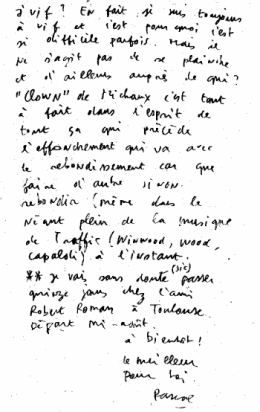 à vif ? En fait je suis toujours
à vif et c'est pourquoi c'est
si difficile parfois. Mais il
ne s'agit pas de se plaindre
et d'ailleurs auprès de qui ?
"CLOWN" de Michaux c'est tout
à fait dans l'esprit de
tout ça qui précède
l'effondrement qui va avec
le rebondissement car que
faire d'autre sinon
rebondir (même dans le
Néant plein de la musique
de Traffic (Winwood, Wood,
Capaldi) à l'instant.
** je vais sans doute (sic) passer
quinze jours chez l'ami
Robert Roman à Toulouse
Départ mi-août.
à bientôt !
le meilleur
pour toi.
Pascal